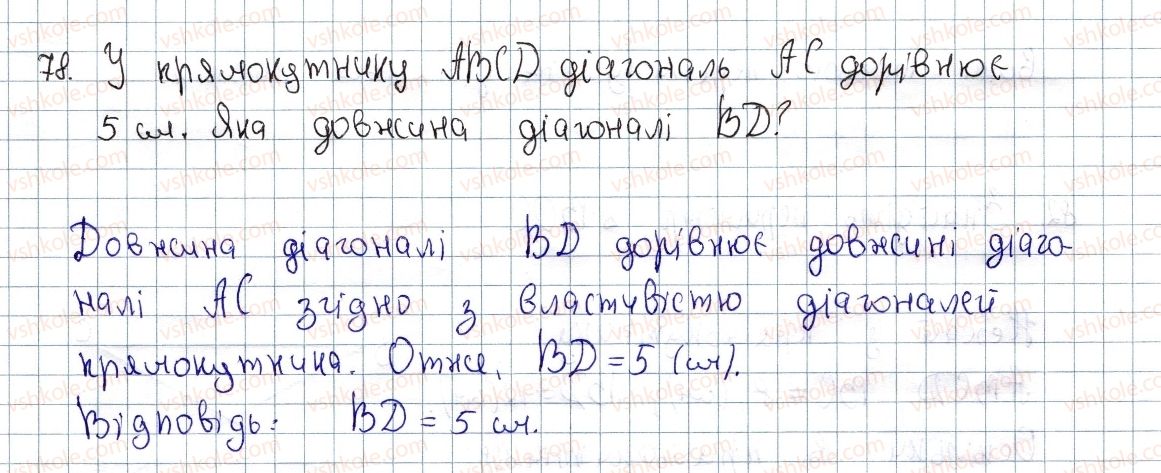 78. У прямокутнику ABCD діагональ AC дорівнює
5 см. Яка довжина діагоналі BD?
Довжина діагоналі BD дорівнює довжині діаго-
налі AC згідно з властивістю діагоналей
прямокутника. Отже, BD = 5 (см).
Відповідь: BD = 5 см.